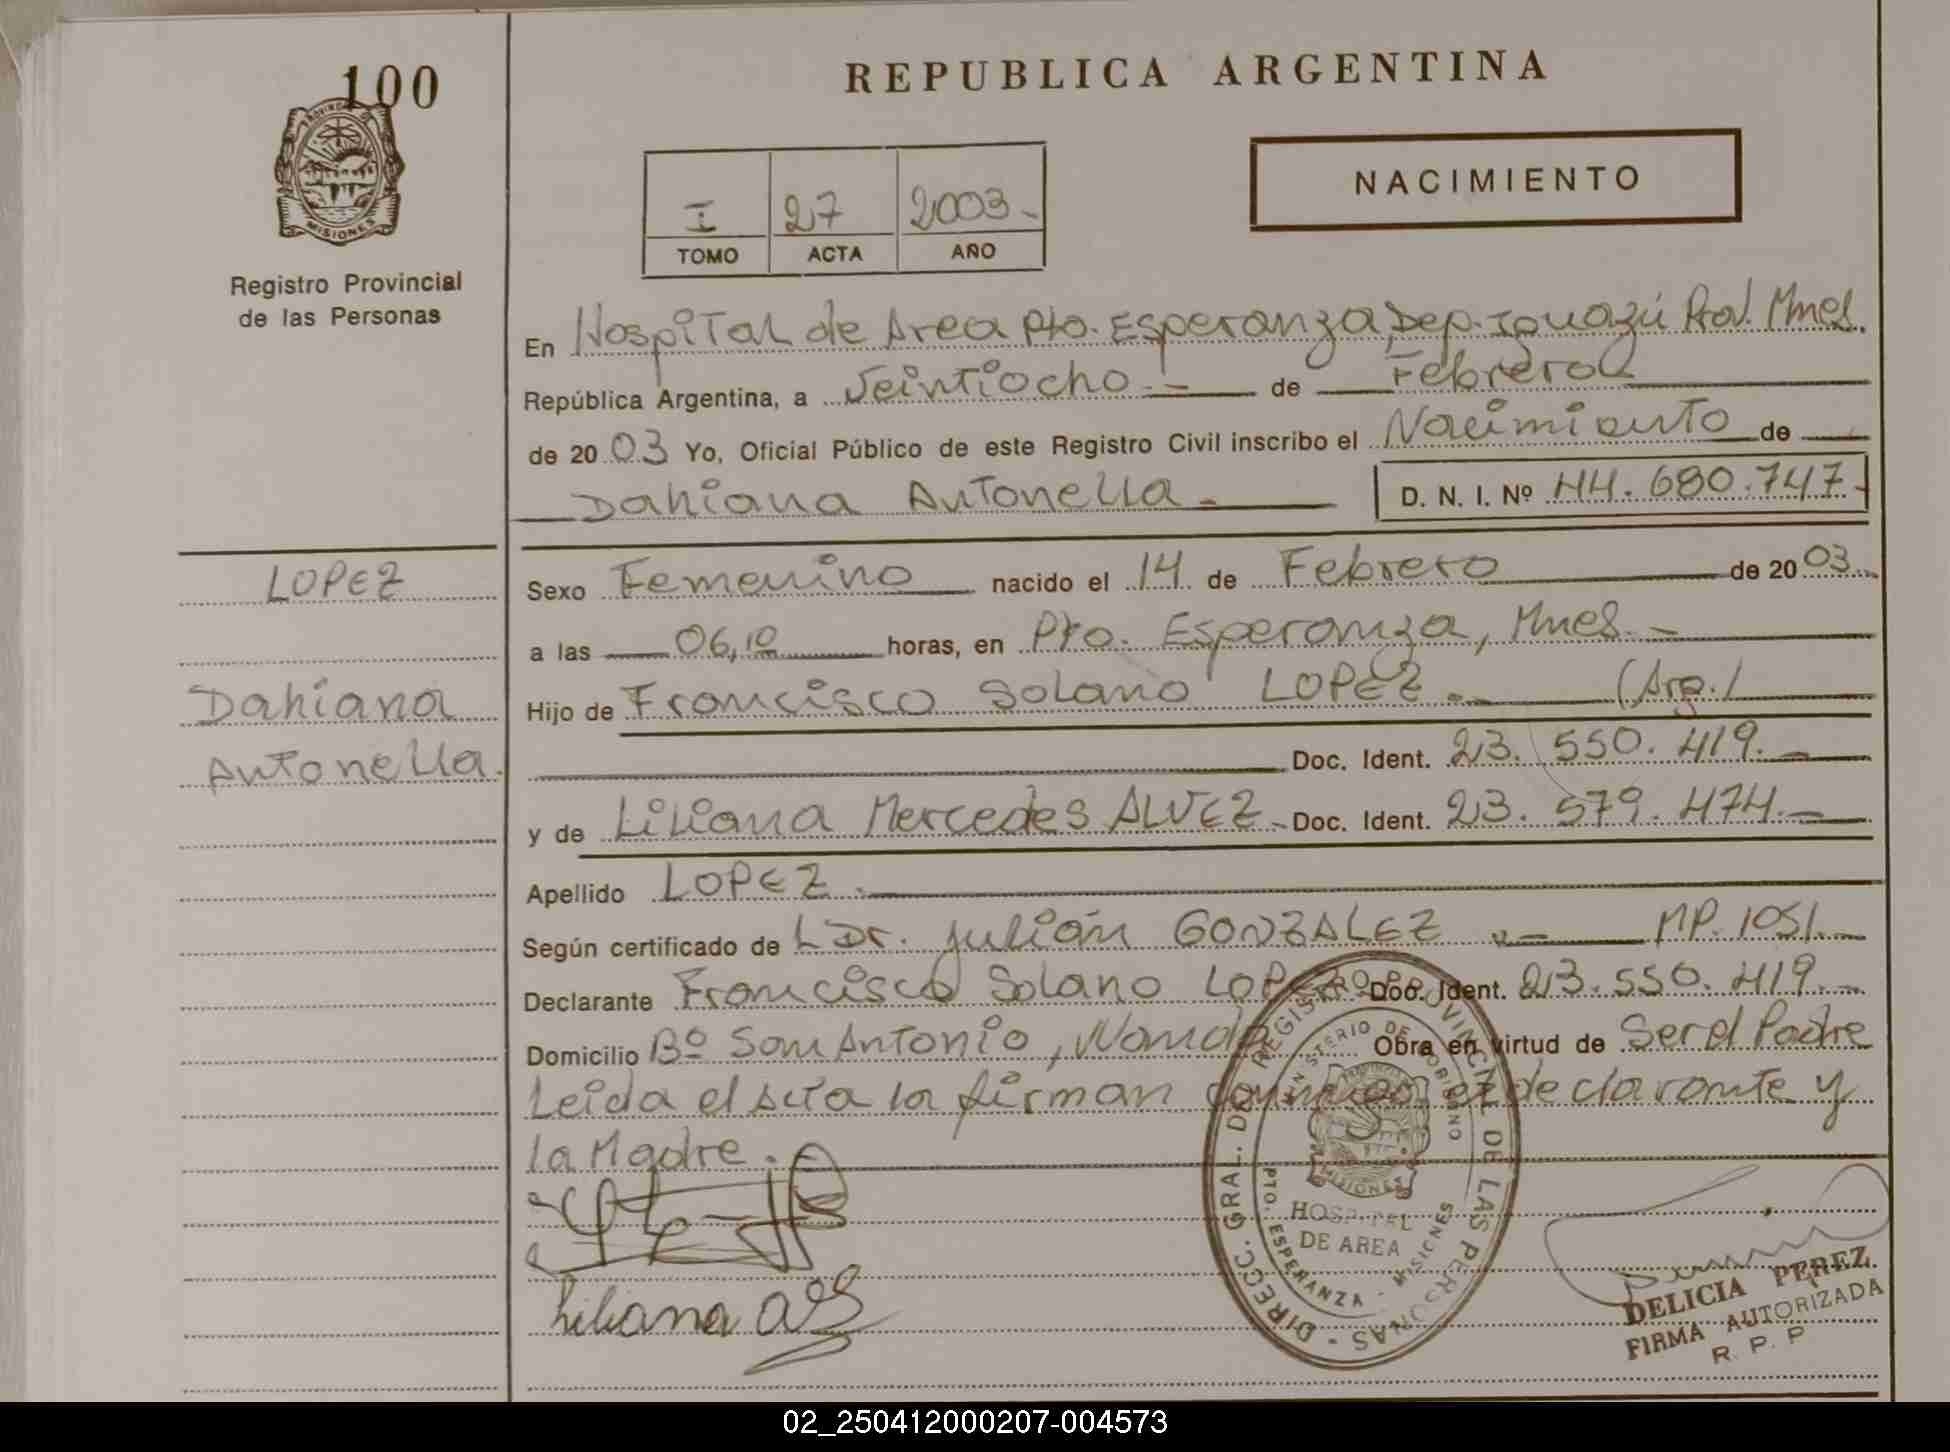 100
PROVINCIA
MISIONES
Registro Provincial
de las Personas
LOPEZ
Dahiana
Antonella.
REPUBLICA ARGENTINA
I 27 2003.-
TOMO ACTA AÑO
NACIMIENTO
En Hospital de Area Pto. Esperanza, Dep. Iguazú Prov. Mnes.
República Argentina, a Veintiocho.- de Febrero
de 2003 Yo, Oficial Público de este Registro Civil inscribo el Nacimiento de
Dahiana Antonella.- D. N. I. Nº 44.680.747-
Sexo Femenino nacido el 14 de Febrero de 2003.
a las 06,10 horas, en Pto. Esperanza, Mnes.-
Hijo de Francisco Solano LOPEZ.- (Arg.)
Doc. Ident. 23.550.419.-
y de Liliana Mercedes ALVEZ- Doc. Ident. 23.579.474.-
Apellido LOPEZ.
Según certificado de Dr. Julián GONZALEZ.- MP. 1051.-
Declarante Francisco Solano LOPEZ Doc. Ident. 23.550.419.-
Domicilio Bº San Antonio, Wanda Obra en virtud de Ser el Padre
Leida el Acta la firman conmigo el declarante y
la Madre.
DIRECC. GRAL. DEL REGISTRO PROVINCIAL DE LAS PERSONAS -
MINISTERIO DE GOBIERNO
MISIONES
HOSPITAL
DE AREA
PTO. ESPERANZA - MISIONES
Liliana
DELICIA PEREZ
FIRMA AUTORIZADA
R. P. P
02_250412000207-004573